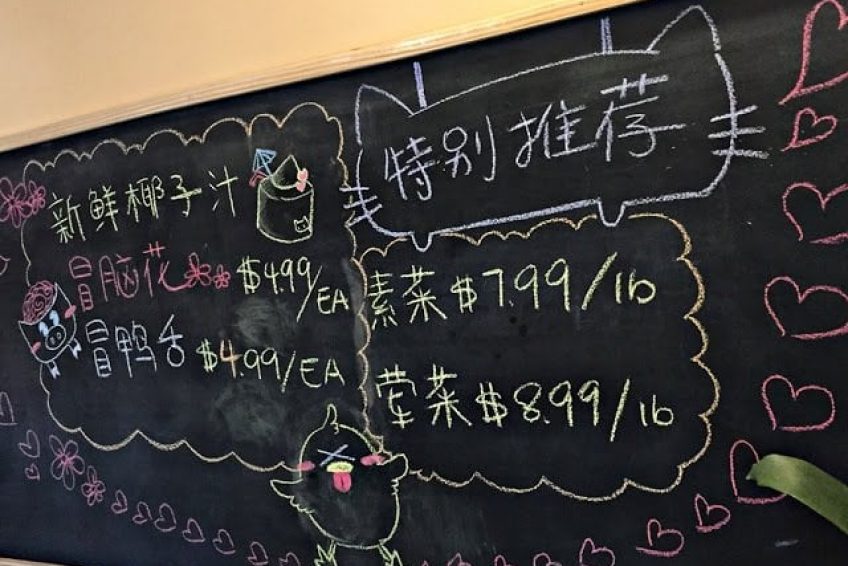 特别推荐
新鲜椰子汁
冒脑花 $4.99/EA
冒鸭舌 $4.99/EA
素菜 $7.99/lb
荤菜 $8.99/lb